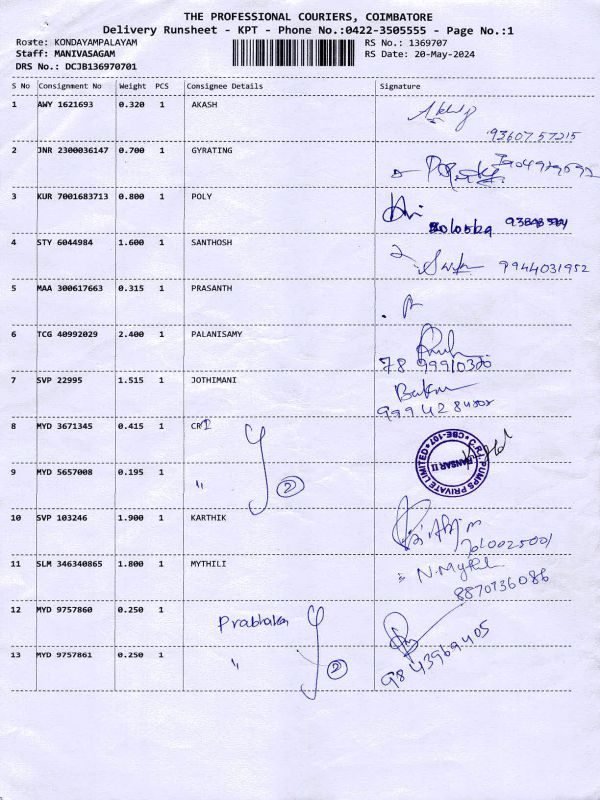 THE PROFESSIONAL COURIERS, COIMBATORE
Delivery Runsheet - KPT - Phone No.:0422-3505555 - Page No.:1
Route: KONDAYAMPALAYAM
Staff: MANIVASAGAM
DRS No.: DCJB136970701
RS No.: 1369707
RS Date: 20-May-2024
S No Consignment No Weight PCS Consignee Details Signature
1 AWY 1621693 0.320 1 AKASH
9360757215
2 JNR 2300036147 0.700 1 GYRATING
3 KUR 7001683713 0.800 1 POLY
4 STY 6044984 1.600 1 SANTHOSH
9944031952
5 MAA 300617663 0.315 1 PRASANTH
6 TCG 40992029 2.400 1 PALANISAMY
7 SVP 22995 1.515 1 JOTHIMANI
8 MYD 3671345 0.415 1 CRI
C.R.I. PUMPS PRIVATE LIMITED CBE-107
9 MYD 5657008 0.195 1 " 2
10 SVP 103246 1.900 1 KARTHIK
11 SLM 346340865 1.800 1 MYTHILI
8870736086
12 MYD 9757860 0.250 1
13 MYD 9757861 0.250 1 " 2
9843969405